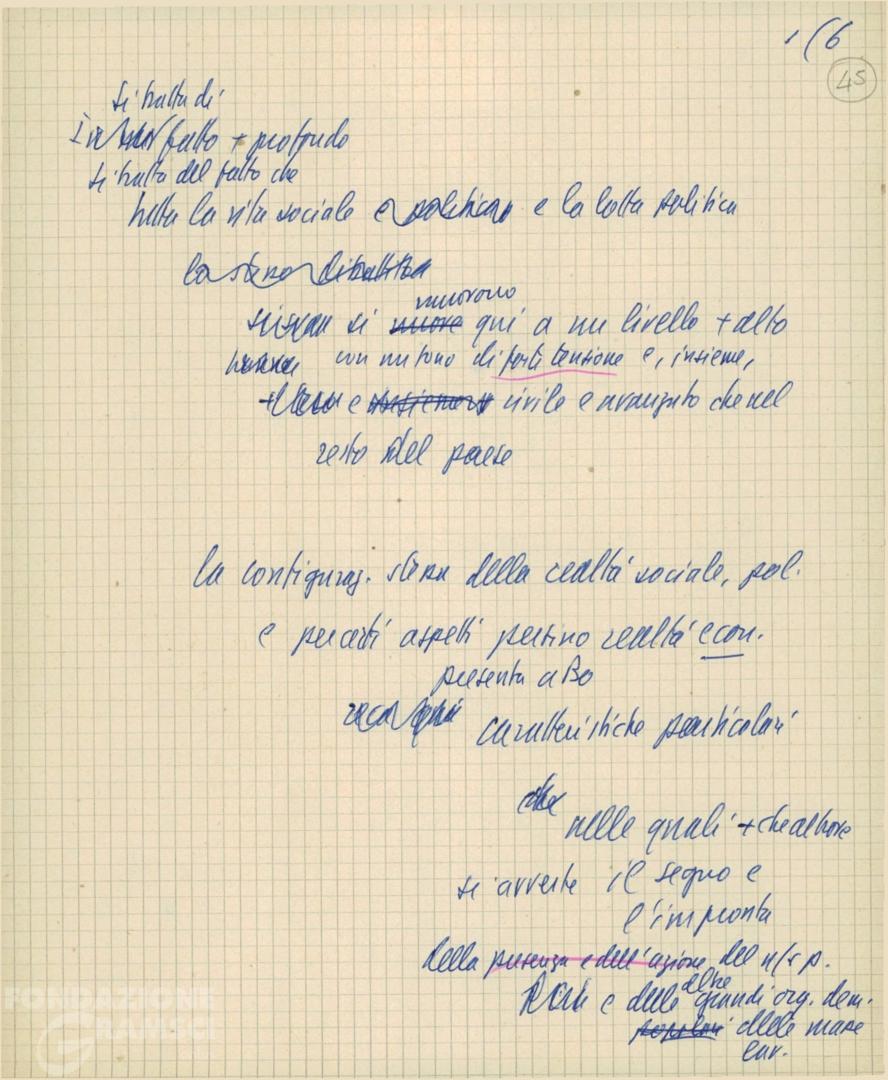 1/6
45
si tratta di
fatto + profondo
si tratta del fatto che
tutta la vita sociale e politica e la lotta politica
la stessa dibattito
muovono
si muove qui a un livello + alto
con un tono di forte tensione e, insieme,
e insieme civile e avanzato che nel
resto del paese
la configuraz. stessa della realtà sociale, pol.
e per certi aspetti persino realtà econ.
presenta a Bo
qui caratteristiche particolari
che
nelle quali + che altrove
si avverte il segno e
l'impronta
della presenza e dell'azione del n/s p.
e delle altre grandi org. dem.
popolari delle masse
lav.
FONDAZIONE
GRAMSCI